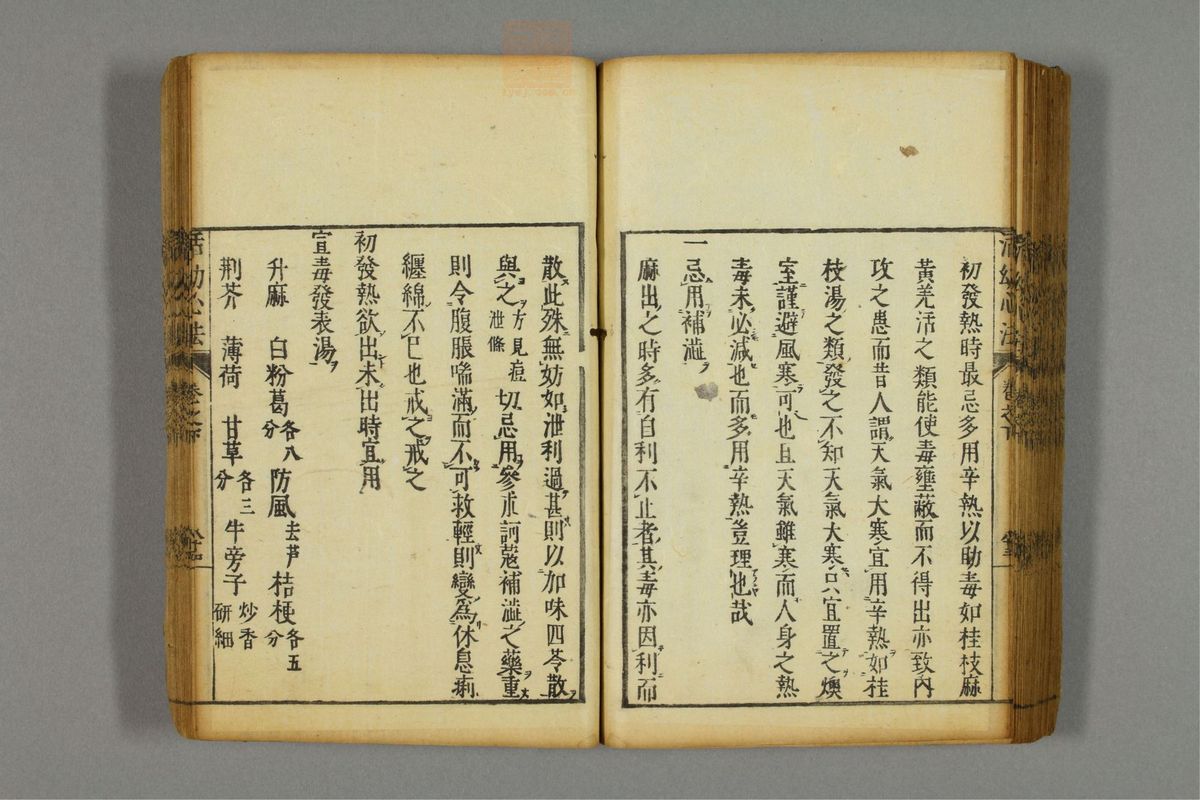 初發熱時最忌多用辛熱以助毒如桂枝麻
黃羌活之類能使毒壅蔽而不得出亦致內
攻之患而昔人謂天氣大寒宜用辛熱如桂
枝湯之類發之不知天氣大寒只宜置之燠
室謹避風寒可也且天氣雖寒而人身之熱
毒未必減也而多用辛熱豈理也哉
一忌用補澁
麻出之時多有自利不止者其毒亦因利而
散此殊無妨如泄利過甚則以加味四苓散
與之方見痘泄條切忌用參朮訶蔻補澁之藥重
則令腹脹喘滿而不可救輕則變為休息痢
纏綿不已也戒之戒之
初發熱欲出未出時宜用
宣毒發表湯
升麻 白粉葛各八分 防風去芦 桔梗各五分
荆芥 薄荷 甘草各三分 牛旁子炒香研細
活幼心法 卷之下